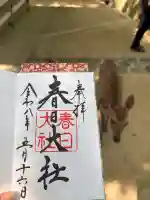 奉拝
春日大社
春日
大社
令和八年五月十六日